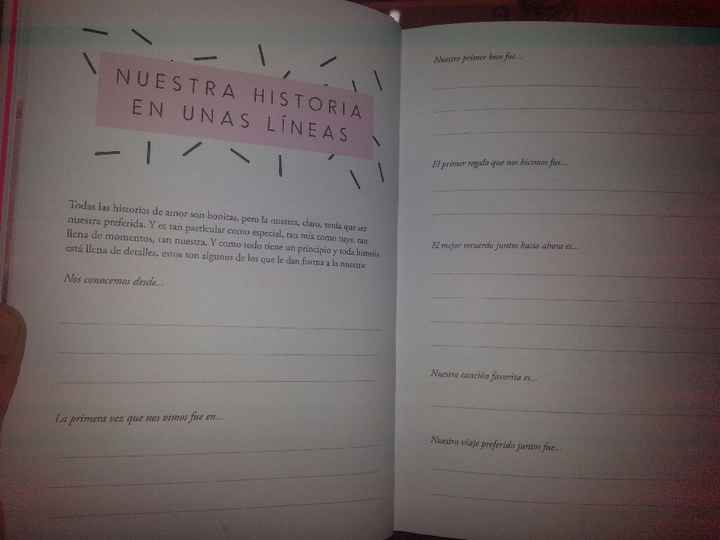 NUESTRA HISTORIA
EN UNAS LÍNEAS
Todas las historias de amor son bonitas, pero la nuestra, claro, tenía que ser
nuestra preferida. Y es tan particular como especial, tan mía como tuya, tan
llena de momentos, tan nuestra. Y como todo tiene un principio y toda historia
está llena de detalles, estos son algunos de los que le dan forma a la nuestra
Nos conocemos desde...
La primera vez que nos vimos fue en...
Nuestro primer beso fue...
El primer regalo que nos hicimos fue...
El mejor recuerdo juntos hasta ahora es...
Nuestra canción favorita es...
Nuestro viaje preferido juntos fue...